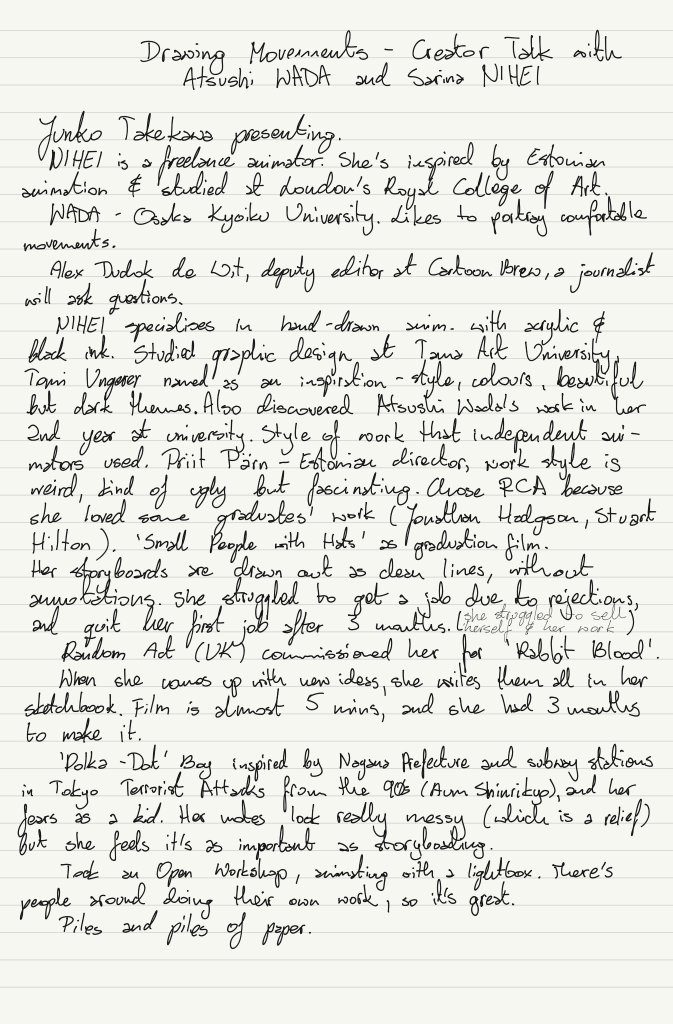 Drawing Movements - Creator Talk with
Atsushi WADA and Sarina NIHEI
Junko Takekawa presenting.
NIHEI is a freelance animator. She's inspired by Estonian
animation & studied at London's Royal College of Art.
WADA - Osaka Kyoiku University. Likes to portray comfortable
movements.
Alex Dudok de Wit, deputy editor at Cartoon Brew, a journalist
will ask questions.
NIHEI specialises in hand-drawn anim. with acrylic &
black ink. Studied graphic design at Tama Art University.
Tomi Ungerer named as an inspiration - style, colours, beautiful
but dark themes. Also discovered Atsushi Wada's work in her
2nd year at university. Style of work that independent ani-
mators used. Priit Pärn - Estonian director, work style is
weird, kind of ugly but fascinating. Chose RCA because
she loved some graduates' work (Jonathan Hodgson, Stuart
Hilton). 'Small People with Hats' as graduation film.
Her storyboards are drawn out as clean lines, without
annotations. She struggled to get a job due to rejections,
and quit her first job after 3 months. (she struggled to sell
herself & her work)
Random Act (UK) commissioned her for 'Rabbit Blood'.
When she comes up with new ideas, she writes them all in her
sketchbook. Film is almost 5 mins, and she had 3 months
to make it.
'Polka-Dot' Boy inspired by Nagano Prefecture and subway stations
in Tokyo Terrorist Attacks from the 90s (Aum Shinrikyo), and her
fears as a kid. Her notes look really messy (which is a relief)
but she feels it's as important as storyboarding.
Took an Open Workshop, animating with a lightbox. There's
people around doing their own work, so it's great.
Piles and piles of paper.